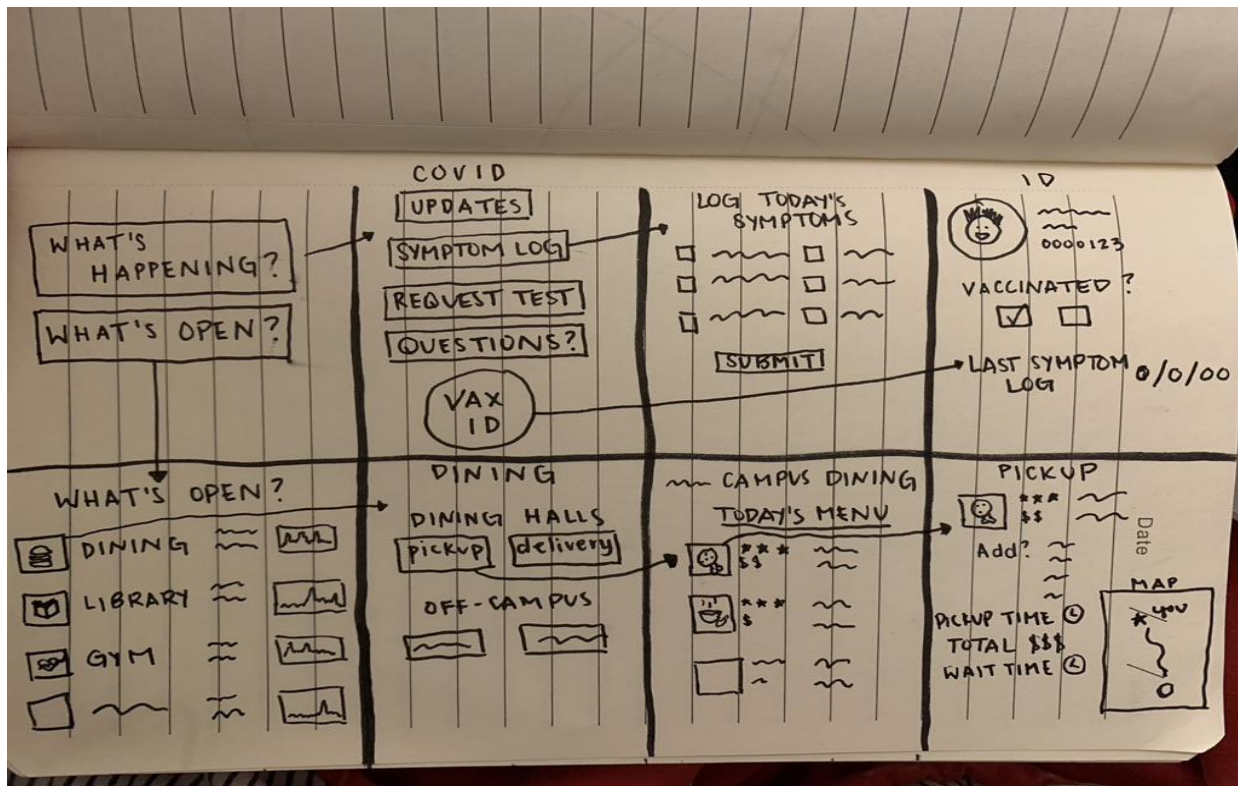 WHAT'S
HAPPENING?
WHAT'S OPEN?
COVID
UPDATES
SYMPTOM LOG
REQUEST TEST
QUESTIONS?
VAX
ID
LOG TODAY'S
SYMPTOMS
SUBMIT
ID
0000123
VACCINATED?
LAST SYMPTOM
LOG 0/0/00
WHAT'S OPEN?
DINING
LIBRARY
GYM
DINING
DINING HALLS
pickup delivery
OFF-CAMPUS
CAMPUS DINING
TODAY'S MENU
$$
$
PICKUP
$$
Add?
PICKUP TIME
TOTAL $$$
WAIT TIME
Date
MAP
you